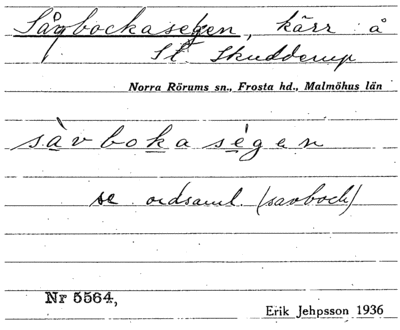 Sågbockasegen, kärr å
St. Skudderup
Norra Rörums sn., Frosta hd., Malmöhus län
sàvbokaségen
se ordsaml. (savbock)
Nr 5564,
Erik Jehpsson 1936